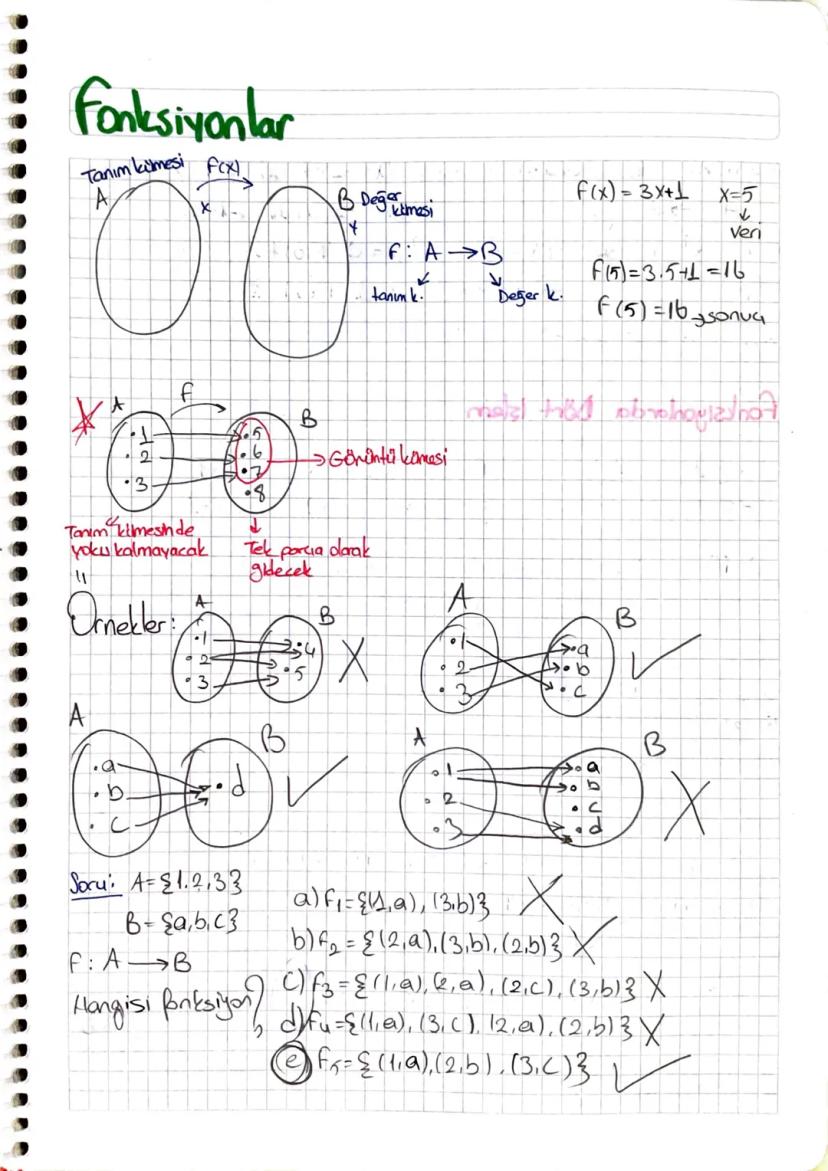 Fonksiyonlar
Tanım kümesi f(x)
A
x
B Değer kümesi
f: A → B
tanım k. Değer k.
f(x) = 3x+1 x=5
↓
veri
f(5)=3.5+1=16
f(5)=16 → sonuç
A f B
.1 .5
.2 .6
.3 .7
.8
→ Görüntü kümesi
Tanım kümesinde
yolcu kalmayacak
Tek parça olarak
gidecek
Örnekler:
A B
.1 .4
.2 .5
.3
X
A B
.1 .a
.2 .b
.3 .c
✓
A B
.a .d
.b
.c
✓
A B
.1 .a
.2 .b
.3 .c
.d
X
Soru: A={1,2,3}
B={a,b,c}
f: A → B
Hangisi fonksiyon?
a) f₁={(1,a), (3,b)} X
b) f₂={(2,a),(3,b),(2,b)} X
c) f₃={(1,a),(2,a),(2,c),(3,b)} X
d) f₄={(1,a),(3,c),(2,a),(2,b)} X
e) f₅={(1,a),(2,b),(3,c)} ✓
Fonksiyonlarda Dört İşlem